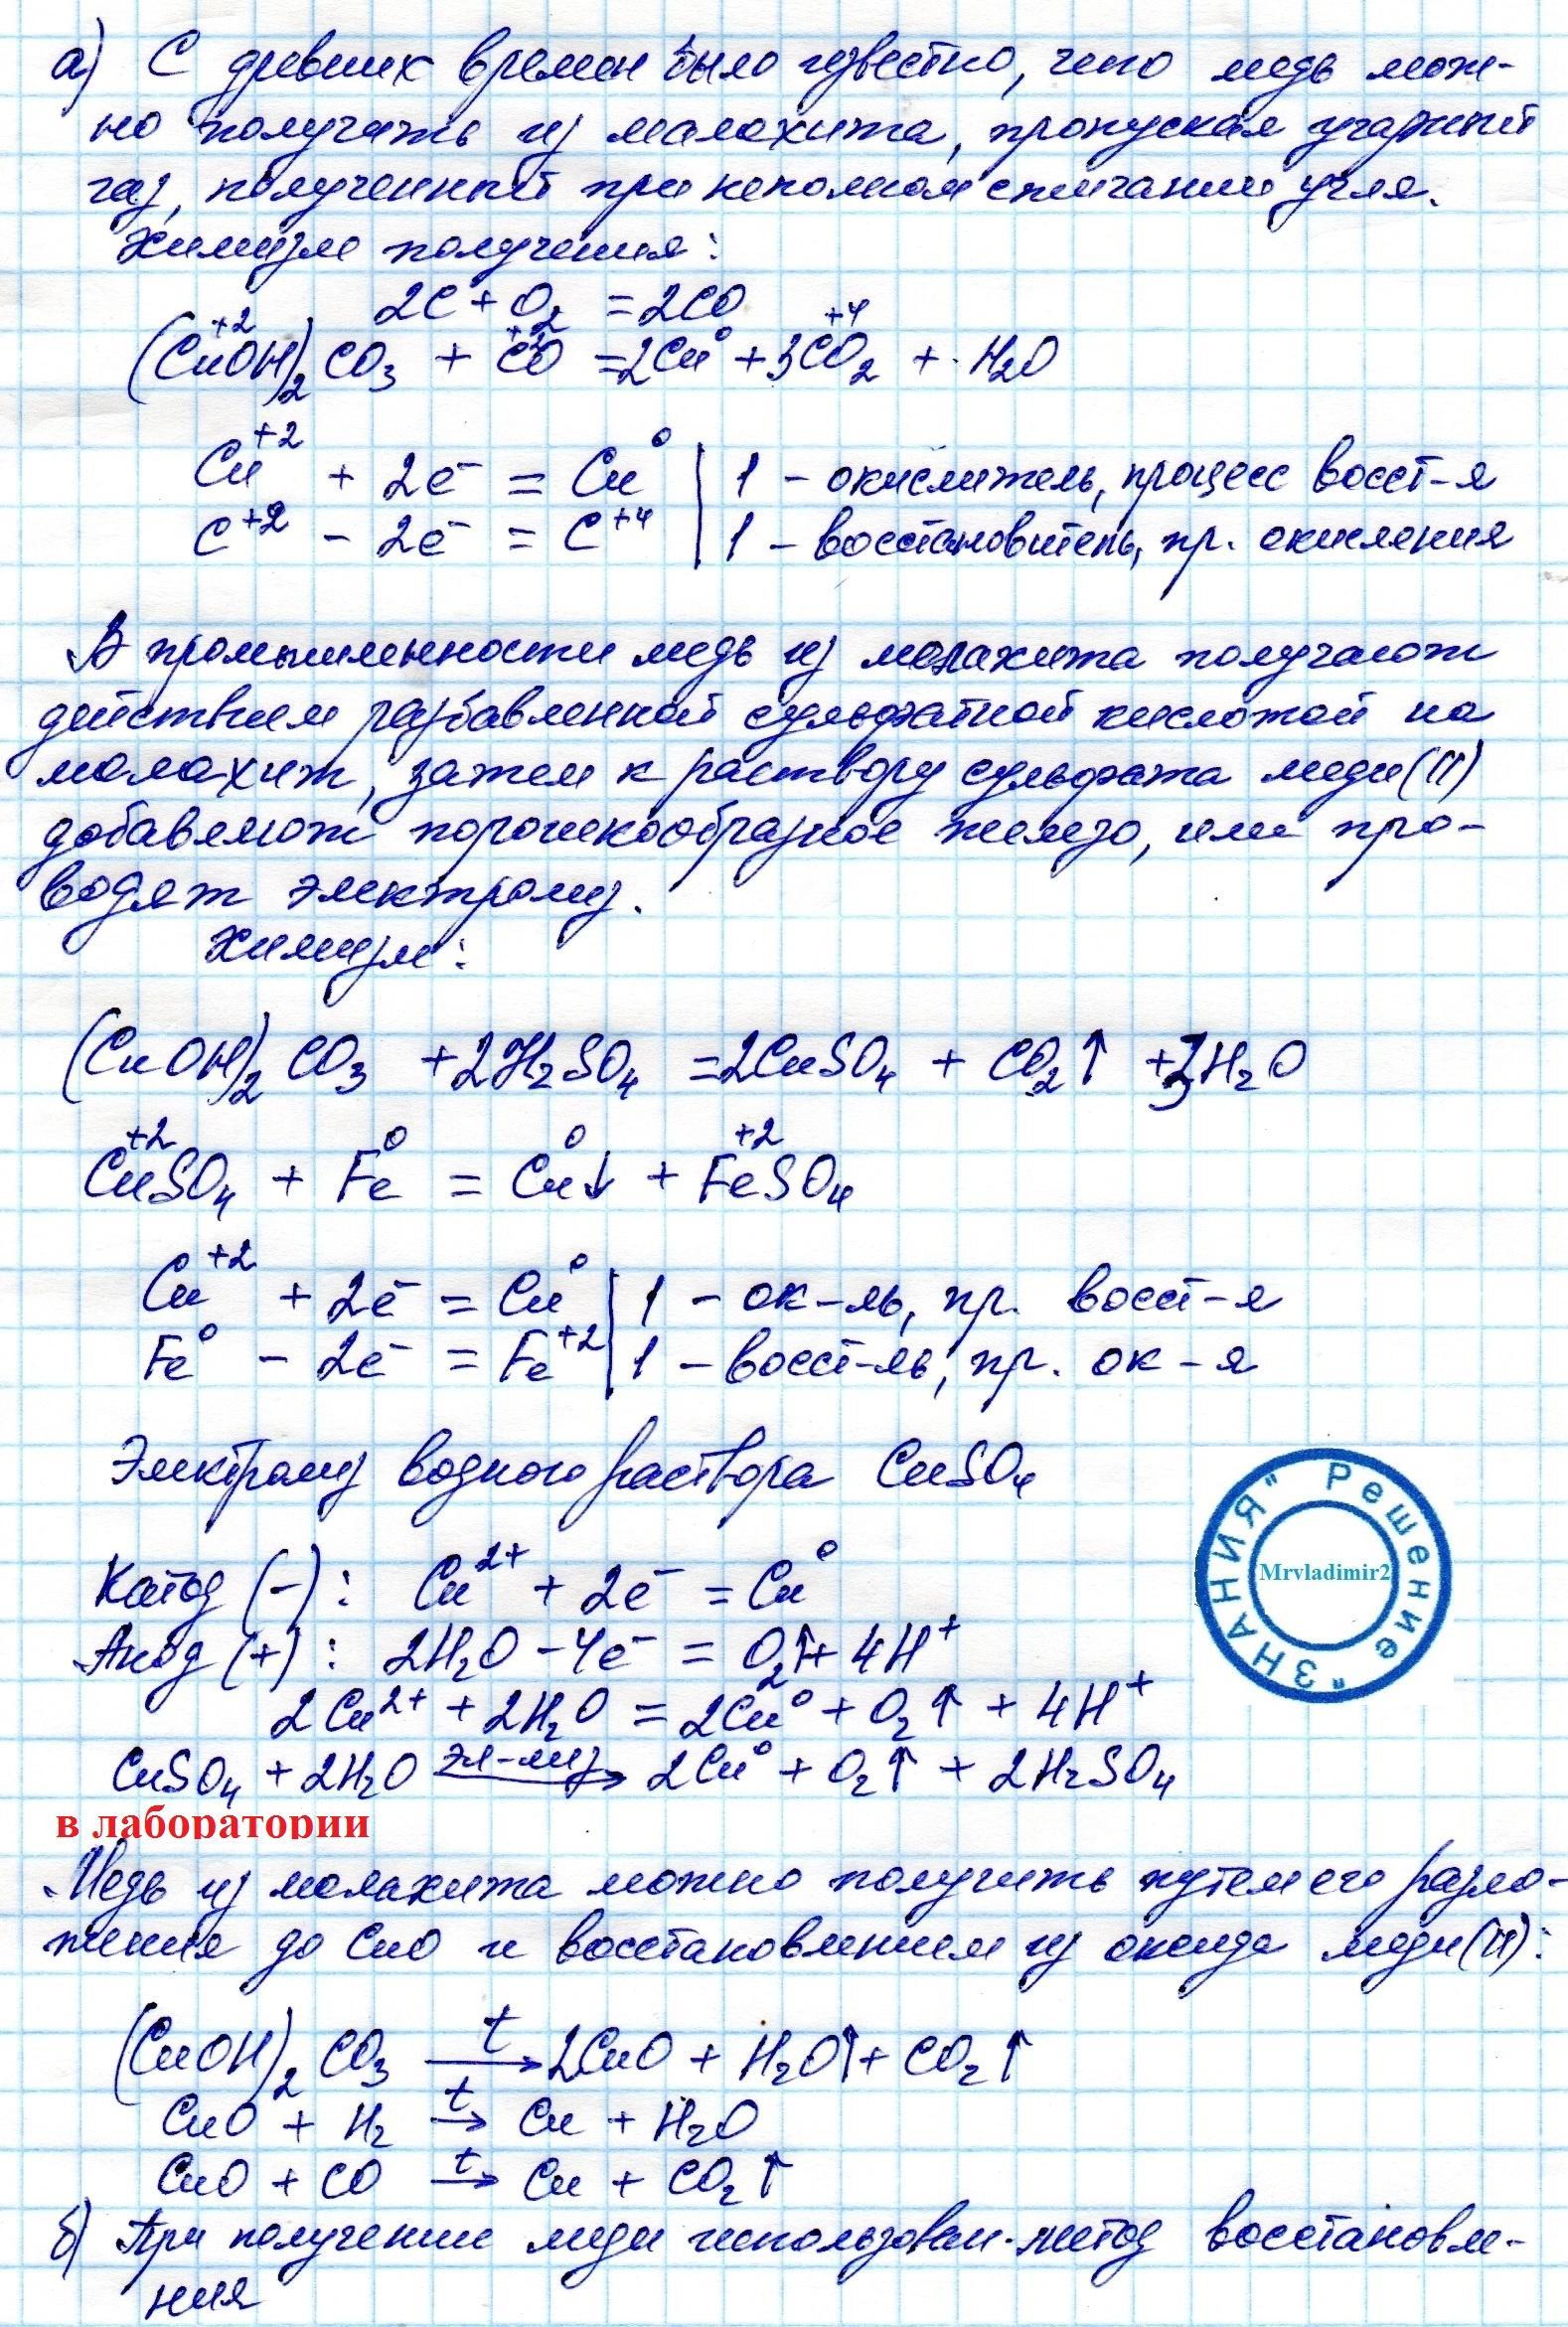 а) С древних времен было известно, что медь мож-
но получить из малахита, пропуская угарный
газ, полученный при неполном сжигании угля.
Химизм получения:
2C + O₂ = 2CO
(Cu⁺²OH)₂CO₃ + C⁺²O = 2Cu⁰ + 3C⁺⁴O₂ + H₂O
Cu⁺² + 2e⁻ = Cu⁰ | 1 – окислитель, процесс восст-я
C⁺² – 2e⁻ = C⁺⁴ | 1 – восстановитель, пр. окисления
В промышленности медь из малахита получают
действием разбавленной сульфатной кислотой на
малахит, затем к раствору сульфата меди(II)
добавляют порошкообразное железо, или про-
водят электролиз.
Химизм:
(CuOH)₂CO₃ + 2H₂SO₄ = 2CuSO₄ + CO₂↑ + 3H₂O
Cu⁺²SO₄ + Fe⁰ = Cu⁰↓ + Fe⁺²SO₄
Cu⁺² + 2e⁻ = Cu⁰ | 1 – ок-ль, пр. восст-я
Fe⁰ – 2e⁻ = Fe⁺² | 1 – восст-ль, пр. ок-я
Электролиз водного раствора CuSO₄
Катод (–): Cu²⁺ + 2e⁻ = Cu⁰
Анод (+): 2H₂O – 4e⁻ = O₂↑ + 4H⁺
2Cu²⁺ + 2H₂O = 2Cu⁰ + O₂↑ + 4H⁺
CuSO₄ + 2H₂O эл-лиз→ 2Cu⁰ + O₂↑ + 2H₂SO₄
"ЗНАНИЯ" Решение
Mrvladimir2
в лаборатории
Медь из малахита можно получить путем его разло-
жения до CuO и восстановлением из оксида меди(II):
(CuOH)₂CO₃ t→ 2CuO + H₂O↑ + CO₂↑
CuO + H₂ t→ Cu + H₂O
CuO + CO t→ Cu + CO₂↑
б) При получении меди использован метод восстановле-
ния